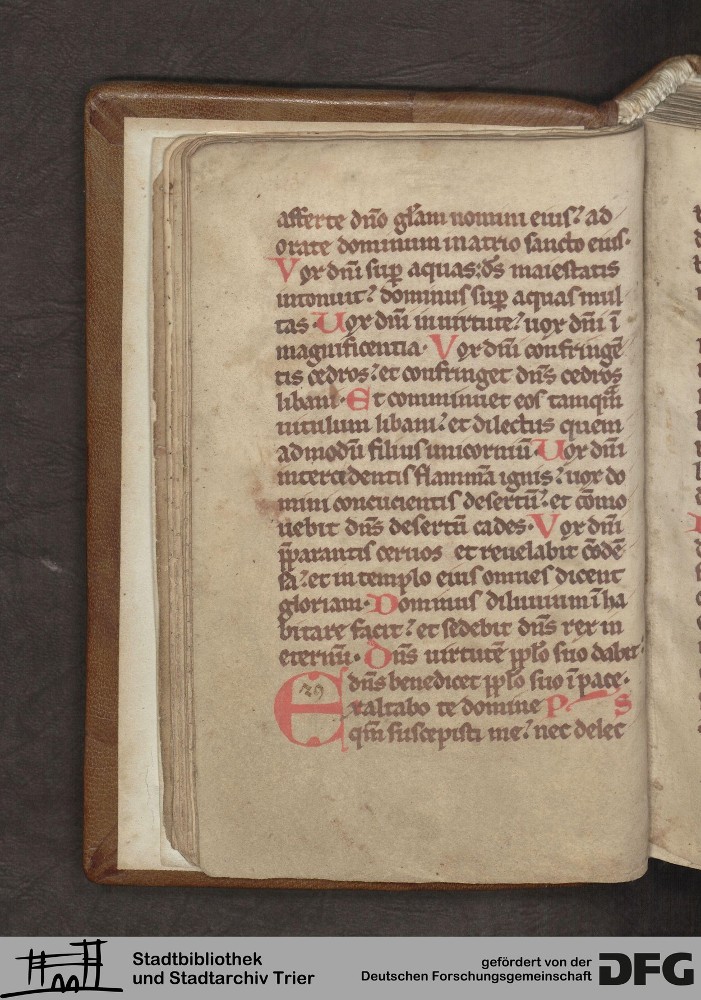 afferte dño gl̃am nomini eius? ad
orate dominum in atrio sancto eius.
Vox dñi sup̱ aquas: d̃s maiestatis
intonuit? dominus sup̱ aquas mul
tas. Uox dñi in uirtute? uox dñi ĩ
magnificentia. Vox dñi confringẽ
tis cedros? et confringet dñs cedros
libani. Et comminuet eos tamqm̃
uitulum libani? et dilectus quem
admodũ filius unicorniũ. Uox dñi
intercedentis flammã ignis? uox do
mini concucientis desertũ? et cõmo
uebit dñs desertũ cades. Vox dñi
p̃parantis ceruos et reuelabit cõdẽ
sa? et in templo eius omnes dicent
gloriam. Dominus diluuium ĩha
bitare facit? et sedebit dñs rex in
eternũ. Dñs uirtutẽ pp̃lo suo dabit?
dñs benedicet pp̃lo suo ĩ pace.
Exaltabo te domine Ps
qm̃ suscepisti me? nec delec
29
Stadtbibliothek
und Stadtarchiv Trier
gefördert von der
Deutschen Forschungsgemeinschaft
DFG